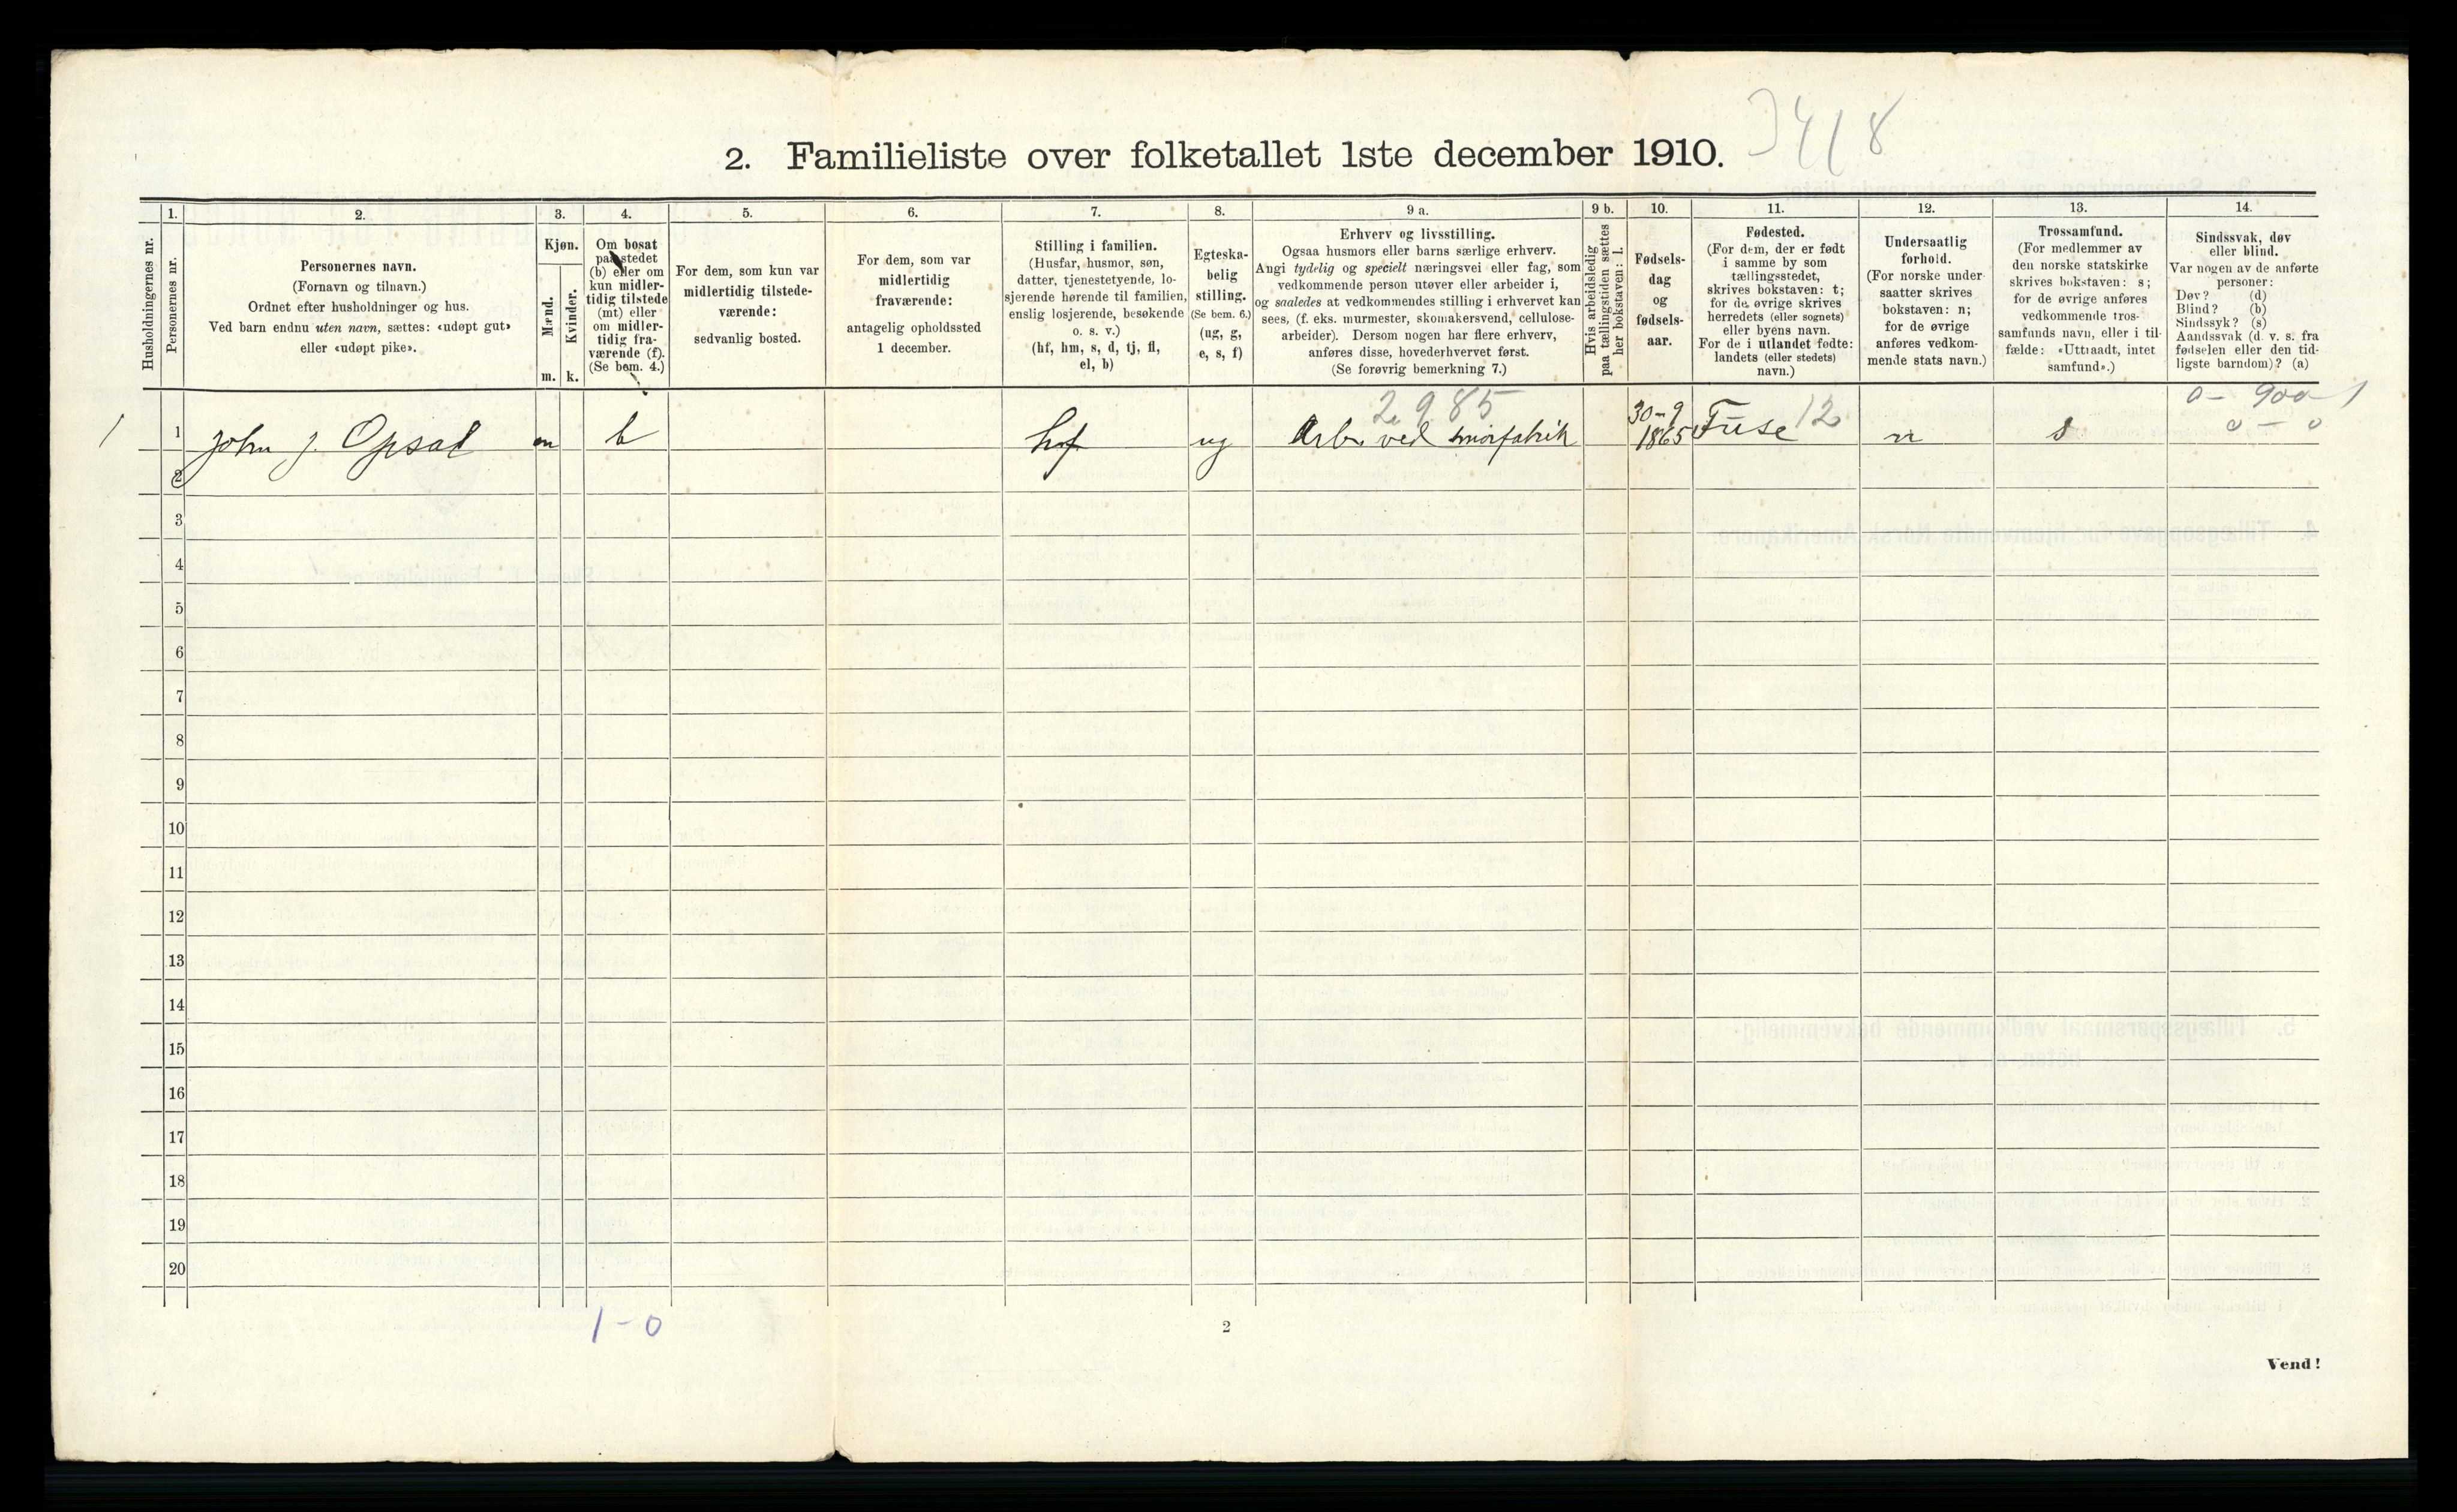 3418
2. Familieliste over folketallet 1ste december 1910.
Husholdningernes nr.
1.
Personernes nr.
2.
Personernes navn.
(Fornavn og tilnavn.)
Ordnet efter husholdninger og hus.
Ved barn endnu uten navn, sættes: «udøpt gut»
eller «udøpt pike».
3.
Kjøn.
Mænd.
Kvinder.
m. k.
4.
Om bosat
paa stedet
(b) eller om
kun midler-
tidig tilstede
(mt) eller
om midler-
tidig fra-
værende (f).
(Se bem. 4.)
5.
For dem, som kun var
midlertidig tilstede-
værende:
sedvanlig bosted.
6.
For dem, som var
midlertidig
fraværende:
antagelig opholdssted
1 december.
7.
Stilling i familien.
(Husfar, husmor, søn,
datter, tjenestetyende, lo-
sjerende hørende til familien,
enslig losjerende, besøkende
o. s. v.)
(hf, hm, s, d, tj, fl,
el, b)
8.
Egteska-
belig
stilling.
(Se bem. 6.)
(ug, g,
e, s, f)
9 a.
Erhverv og livsstilling.
Ogsaa husmors eller barns særlige erhverv.
Angi tydelig og specielt næringsvei eller fag, som
vedkommende person utøver eller arbeider i,
og saaledes at vedkommendes stilling i erhvervet kan
sees, (f. eks. murmester, skomakersvend, cellulose-
arbeider). Dersom nogen har flere erhverv,
anføres disse, hovederhvervet først.
(Se forøvrig bemerkning 7.)
9 b.
Hvis arbeidsledig
paa tællingstiden sættes
her bokstaven: l.
10.
Fødsels-
dag
og
fødsels-
aar.
11.
Fødested.
(For dem, der er født
i samme by som
tællingsstedet,
skrives bokstaven: t;
for de øvrige skrives
herredets (eller sognets)
eller byens navn.
For de i utlandet fødte:
landets (eller stedets)
navn.)
12.
Undersaatlig
forhold.
(For norske under-
saatter skrives
bokstaven: n;
for de øvrige
anføres vedkom-
mende stats navn.)
13.
Trossamfund.
(For medlemmer av
den norske statskirke
skrives bokstaven: s;
for de øvrige anføres
vedkommende tros-
samfunds navn, eller i til-
fælde: «Uttraadt, intet
samfund».)
14.
Sindssvak, døv
eller blind.
Var nogen av de anførte
personer:
Døv? (d)
Blind? (b)
Sindssyk? (s)
Aandssvak (d. v. s. fra
fødselen eller den tid-
ligste barndom)? (a)
2985 0 - 900 - 1
1 1 John J. Opsal m b hf ug Arb. ved smørfabrik 30-9 1865 Fuse 12 n s 0 - 0
2
3
4
5
6
7
8
9
10
11
12
13
14
15
16
17
18
19
20
1 - 0
2
Vend!